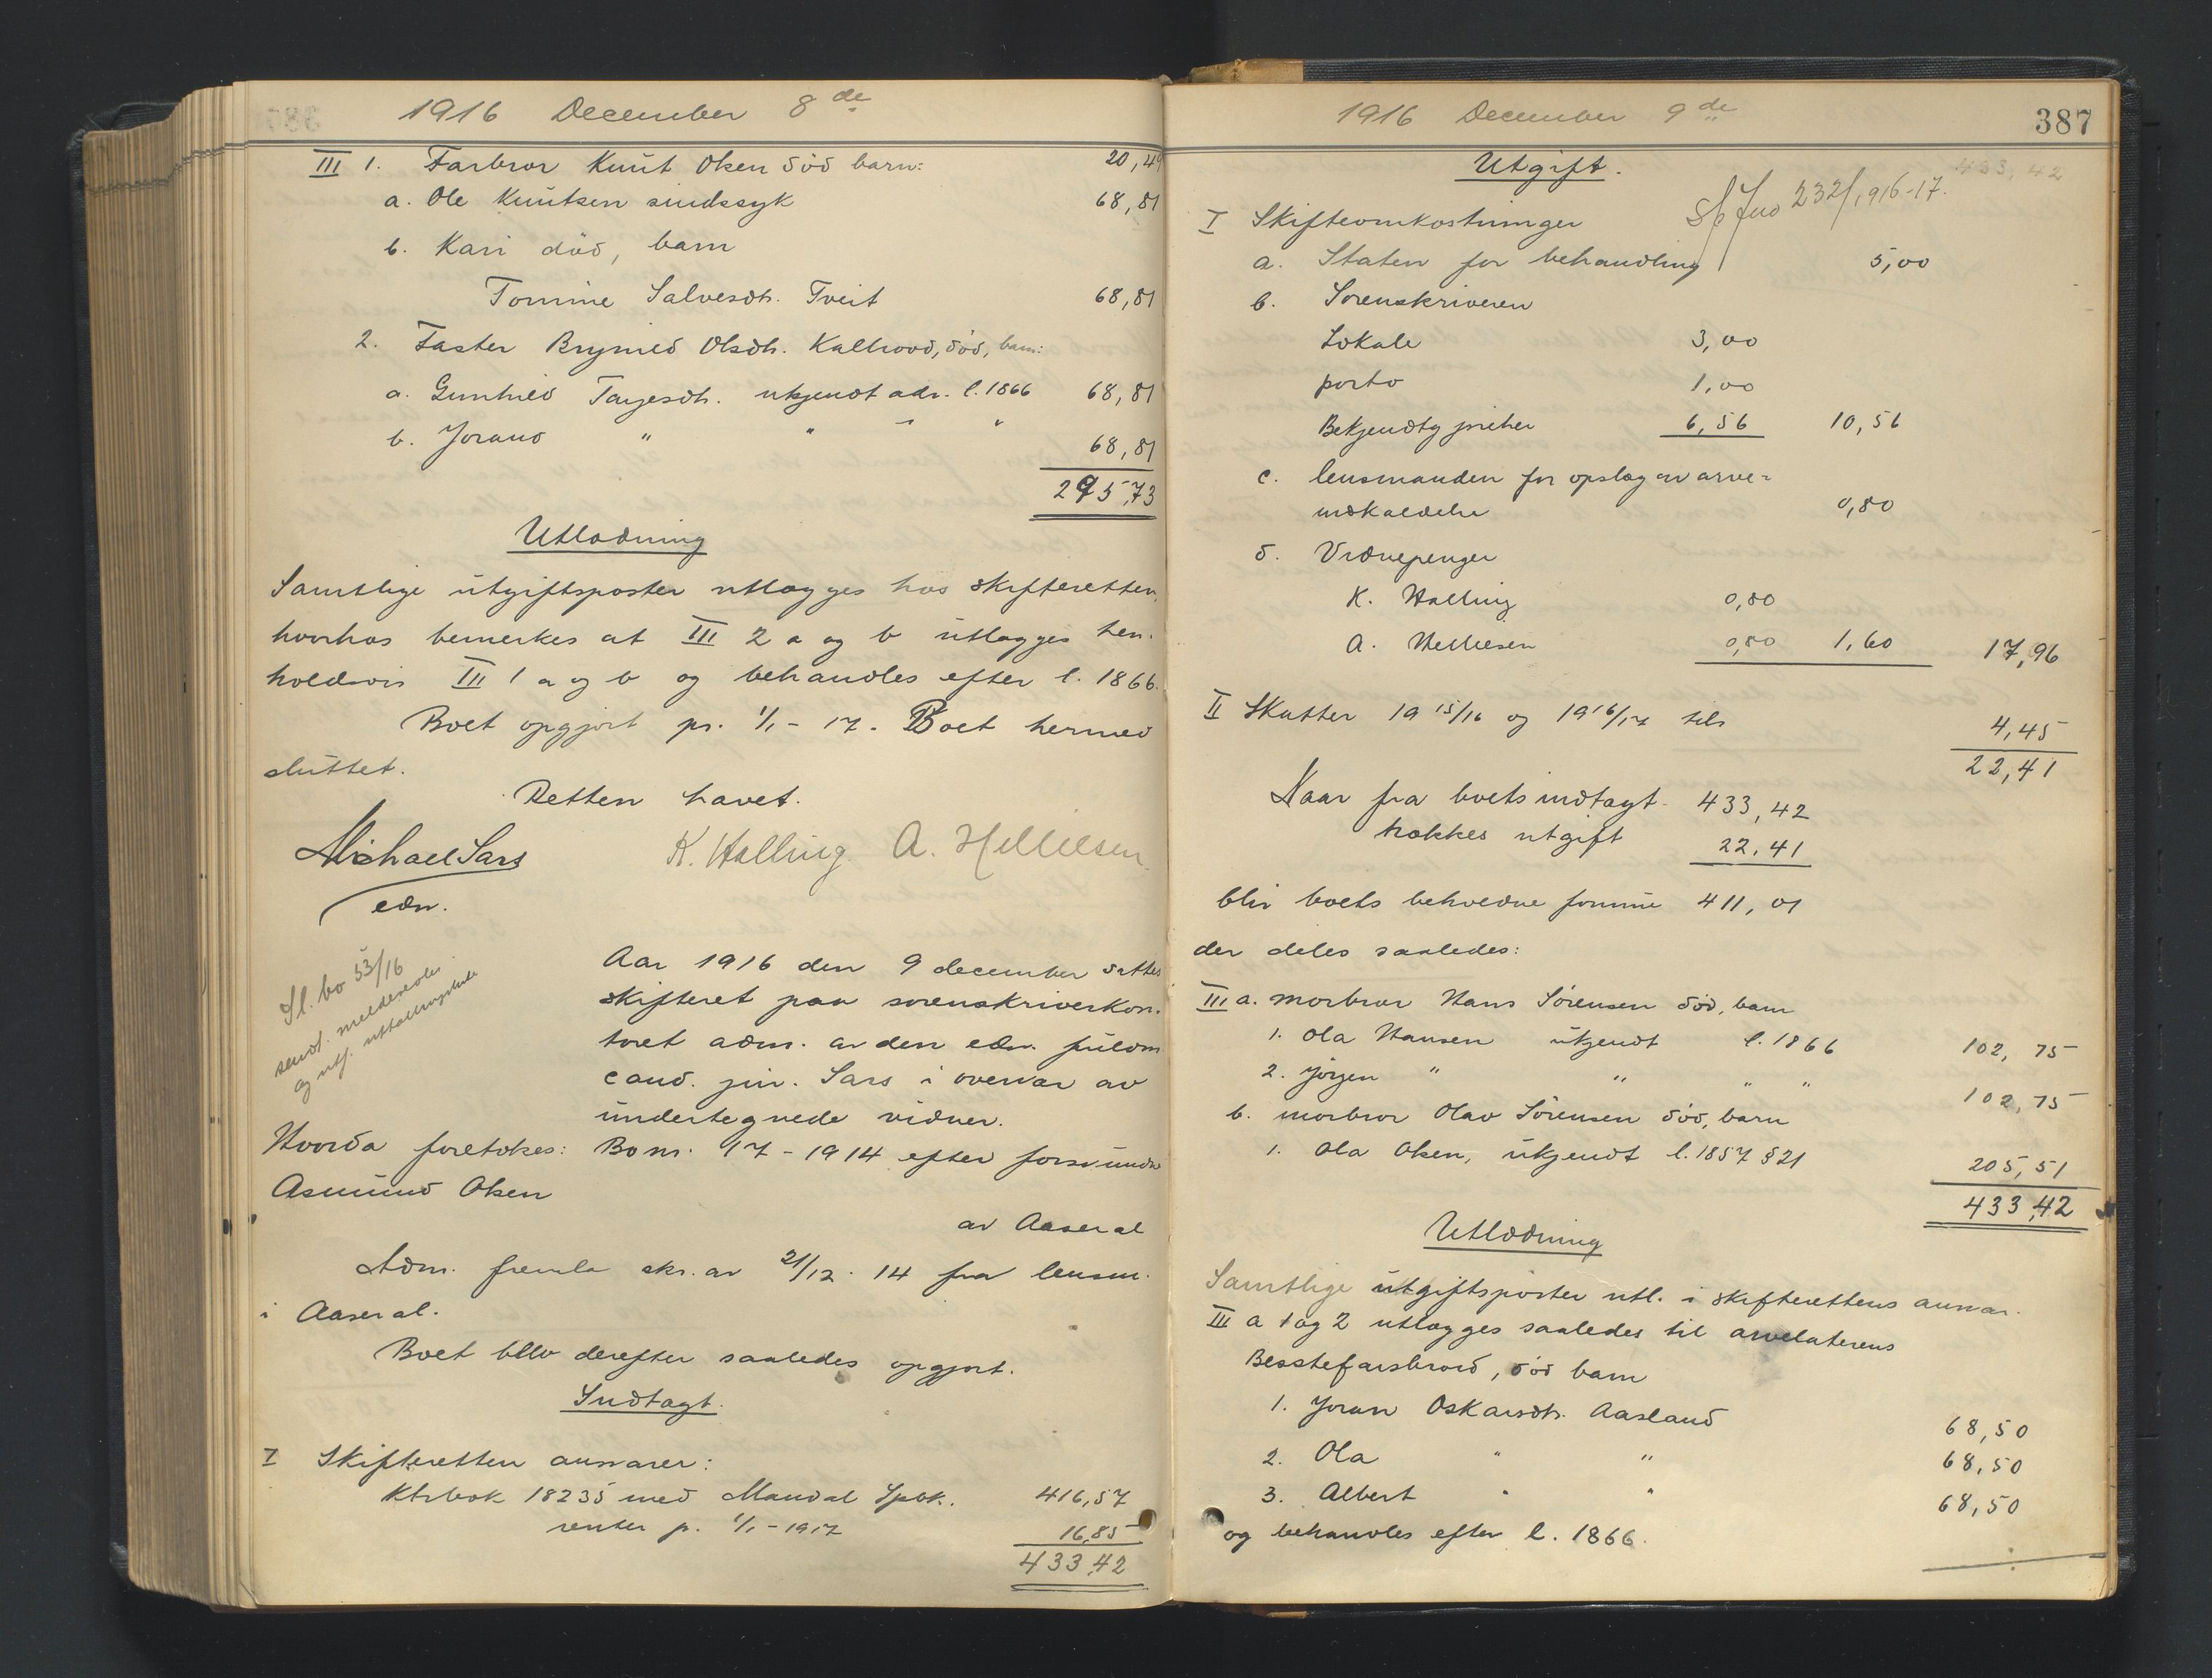 1916 December 8de
III 1. Farbror Knut Olsen död barn: 20,49
a. Ole Knutsen sindssyk 68,81
b. Kari död, barn
Tomine Salvesdtr. Tveit 68,81
2. Faster Brynild Olsdtr. Kalhovd, död, barn:
a. Gunhild Targesdtr. ukjendt adr. l. 1866 68,81
b. Jorand " " " " 68,81
295,73
Utlodning
Samtlige utgiftsposter utlægges hos skifteretten,
hvorhos bemerkes at III 2 a og b utlægges hen-
holdsvis III 1 a og b og behandles efter l. 1866.
Boet opgjort pr. 1/1 - 17. Boet hermed
sluttet.
Retten hævet.
Michael Sars K. Halling A. Hellilesen
edsv.
Sl. bo 53/16
sendt meldesedler
og utf. utskiftningsliste
Aar 1916 den 9 december sattes
skifteret paa sorenskriverkon-
toret adm. av den edsv. fuldm.
cand. jur. Sars i overvær av
undertegnede vidner.
Hvorda foretokes: Bo nr. 17 - 1914 efter forsvundne
Asmund Olsen
av Aaseral
Adm. fremla skr. av 21/12. 14 fra lensm.
i Aaseral.
Boet blev derefter saaledes opgjort.
Indtægt.
I Skifteretten ansvarer:
Ktrbok 18235 med Mandal Spbk. 416,57
renter p. 1/1 - 1917 16,85
433,42
1916 December 9de 387
Utgift. 433,42
232/1916-17.
I Skifteomkostninger
a. Staten for behandling 5,00
b. Sorenskriveren
Lokale 3,00
porto 1,00
Bekjendtgjørelser 6,56 10,56
c. lensmanden for opslag av arve-
indkaldelse 0,80
d. Vidnepenger
K. Halling 0,80
A. Hellilesen 0,80 1,60 17,96
II Skatter 1915/16 og 1916/17 tils 4,45
22,41
Naar fra boets indtægt 433,42
trækkes utgift 22,41
blir boets beholdne formue 411,01
der deles saaledes:
III a. morbror Hans Sörensen död, barn
1. Ola Hansen ukjendt l. 1866 102,75
2. Jörgen " " " " 102,75
b. morbror Olav Sörensen död, barn
1. Ola Olsen, ukjendt l. 1857 § 21 205,51
433,42
Utlodning
Samtlige utgiftsposter utl. i skifterettens ansvar.
III a 1 og 2 utlægges saaledes til arvelaterens
Besstefarsbrord, död barn
1. Joran Oskarsdtr. Aasland 68,50
2. Ola " " 68,50
3. Albert " " 68,50
og behandles efter l. 1866.